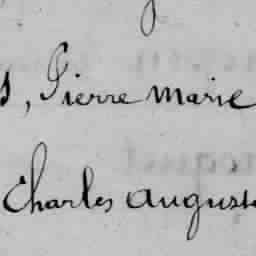 , Pierre Marie
Charles Auguste